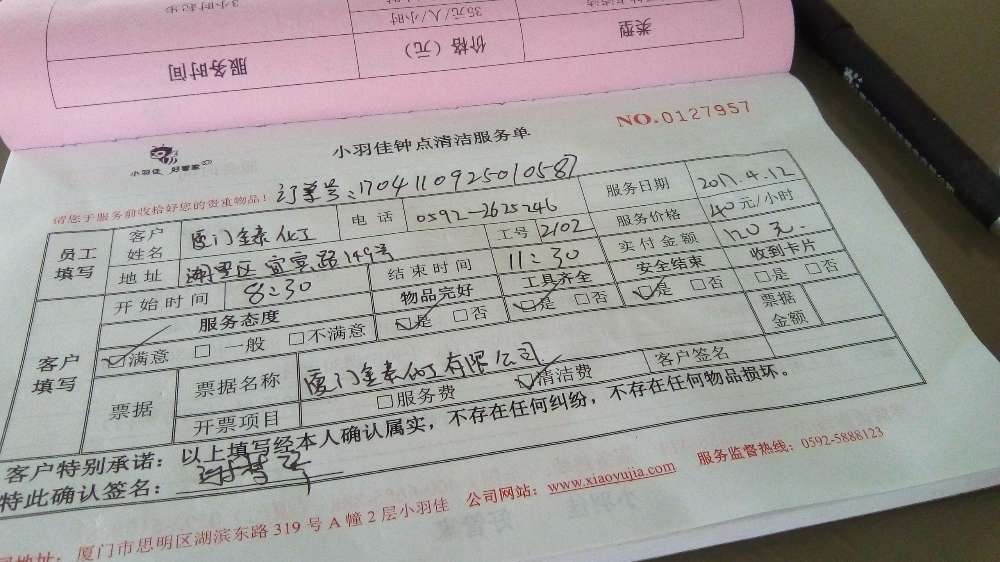 3小时起步
35元/人/小时
服务时间
价格（元）
类型
NO.0127957
小羽佳 好管家
小羽佳钟点清洁服务单
请您于服务前收拾好您的贵重物品！
订单号：1704110925010587
员工填写
客户姓名
厦门金泰化工
电话
0592-2625246
服务日期
2017.4.12
地址
湖里区宜宾路149号
工号
2102
服务价格
40元/小时
开始时间
8:30
结束时间
11:30
实付金额
120元.
客户填写
服务态度
物品完好
工具齐全
安全结束
收到卡片
☑满意 □一般 □不满意
☑是 □否
☑是 □否
☑是 □否
□是 □否
票据
票据名称
厦门金泰化工有限公司
票据金额
开票项目
□服务费 ☑清洁费
客户签名
客户特别承诺：以上填写经本人确认属实，不存在任何纠纷，不存在任何物品损坏。
特此确认签名：
地址：厦门市思明区湖滨东路319号A幢2层小羽佳 公司网站：www.xiaoyujia.com 服务监督热线：0592-5888123